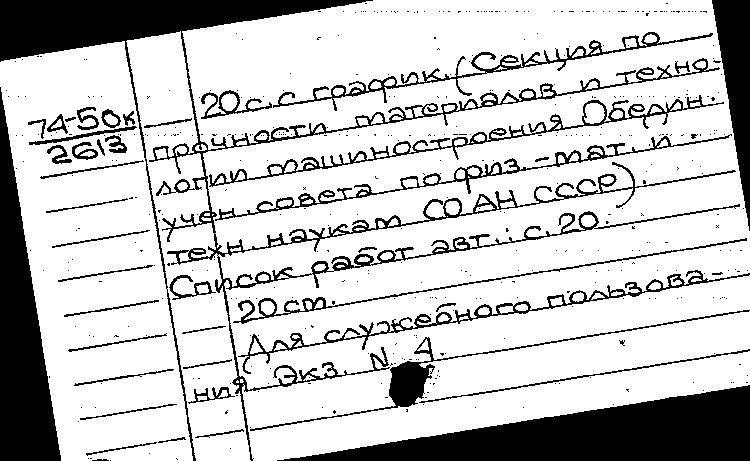 74-50к
2613
20 с. с график. (Секция по
прочности материалов и техно-
логии машиностроения Обедин.
учен. совета по физ.-мат. и
техн. наукам СО АН СССР).
Список работ авт.: с. 20.
20 ст.
Для служебного пользова-
ния. Экз. N 4.